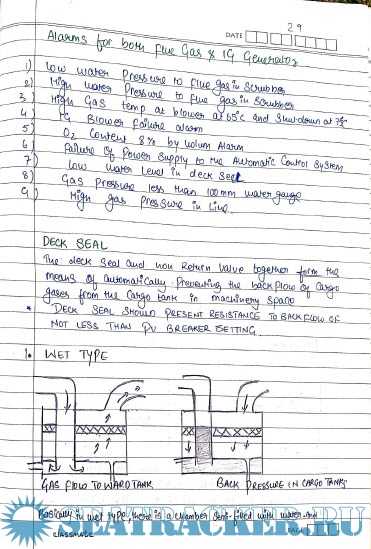 29
DATE
Alarms for both flue Gas & IG Generator
1) Low water Pressure to flue gas in Scrubber
2) High water Pressure to flue gas in scrubber
3) High Gas temp at blower at 65°c and shutdown at 75°
4) IG Blower failure alarm
5) O2 Content 8% by volum Alarm
6) Failure of Power Supply to the Automatic Control System
7) Low water Level in deck seal
8) Gas Pressure less than 100mm water gauge
9) High gas pressure in Line.
DECK SEAL
The deck Seal and non Return Valve together form the
means of automatically preventing the backflow of Cargo
gases from the Cargo tank in machinery space
* DECK SEAL SHOULD PRESENT RESISTANCE TO BACKFLOW OF
NOT LESS THAN PV BREAKER SETTING.
1. WET TYPE
GAS FLOW TOWARD TANK
BACK PRESSURE IN CARGO TANK
Basically in wet type, there is a chamber semi-filled with water. And
SEATRACKER.RU
CLASSMATE
PAGE